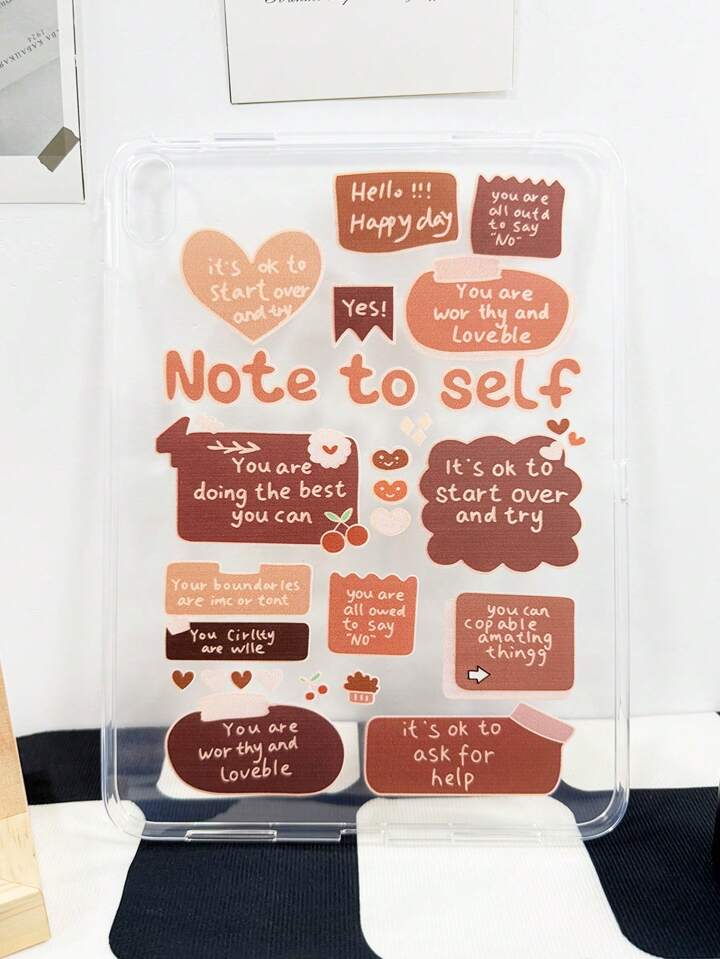 Hello !!!
Happy day
you are
all outd
to say
"NO"
it's ok to
start over
and try
Yes!
You are
wor thy and
Loveble
Note to self
You are
doing the best
you can
It's ok to
start over
and try
Your boundarles
are imc or tont
you are
all owed
to say
"NO"
you can
copable
amatlng
thingg
You Cirllty
are wlle
You are
wor thy and
Loveble
it's ok to
ask for
help